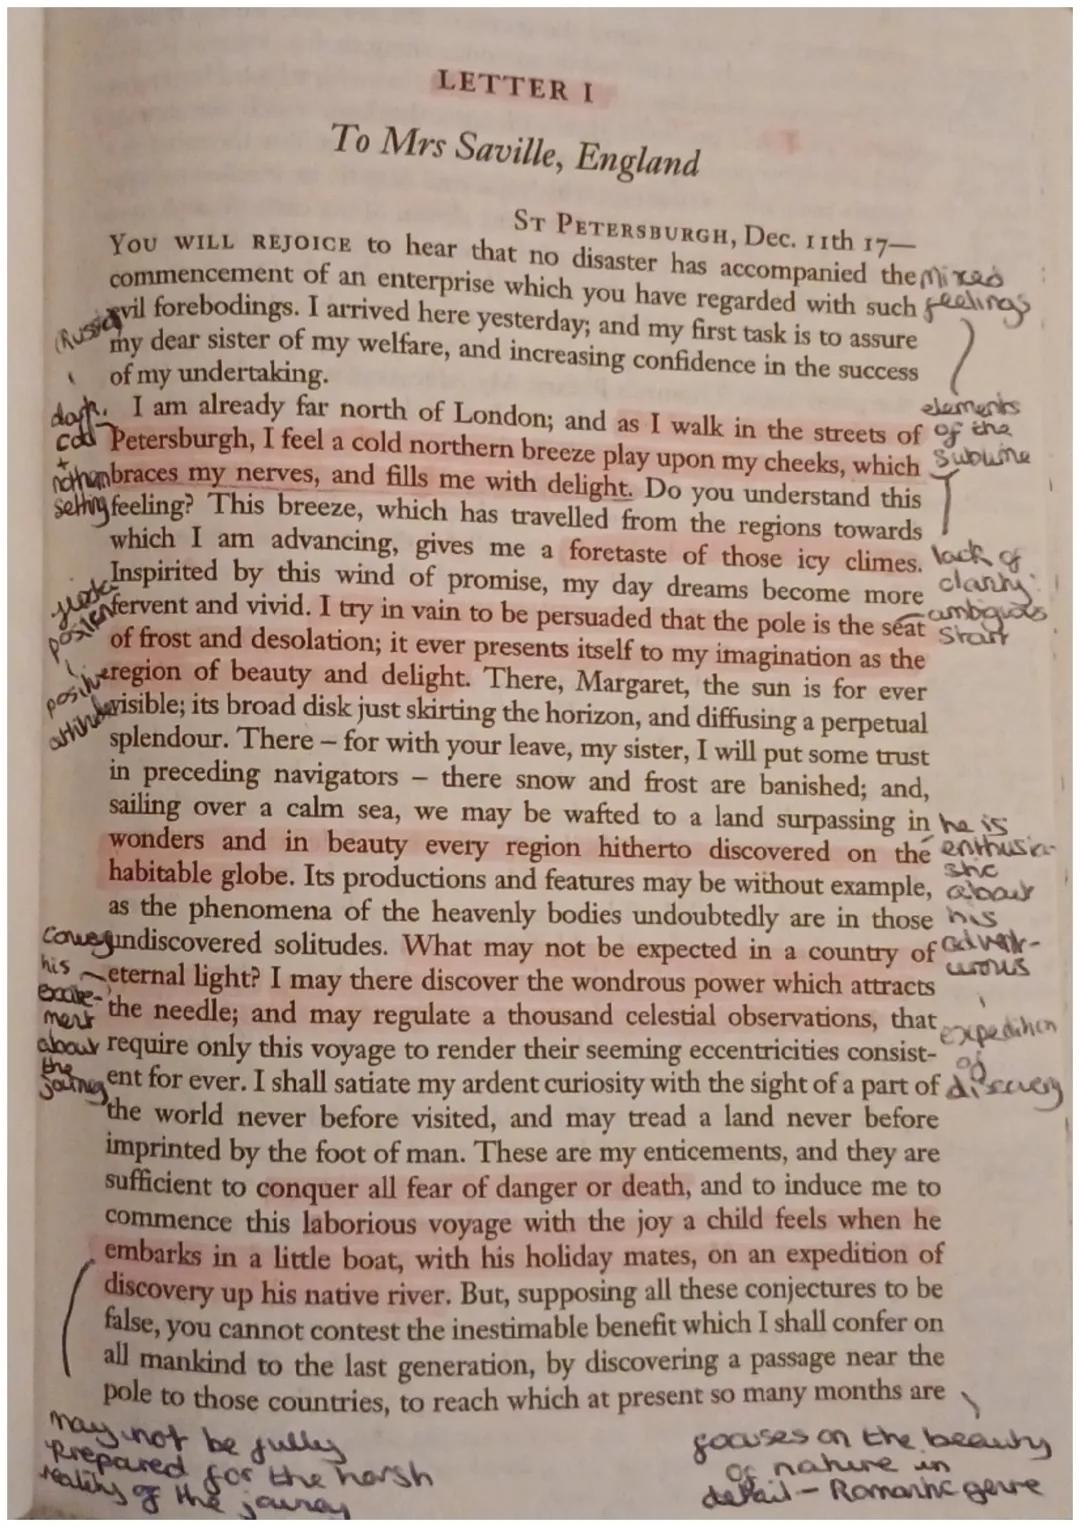 LETTER I
To Mrs Saville, England
ST PETERSBURGH, Dec. 11th 17—
YOU WILL REJOICE to hear that no disaster has accompanied the
commencement of an enterprise which you have regarded with such
evil forebodings. I arrived here yesterday; and my first task is to assure
my dear sister of my welfare, and increasing confidence in the success
of my undertaking.
I am already far north of London; and as I walk in the streets of
Petersburgh, I feel a cold northern breeze play upon my cheeks, which
braces my nerves, and fills me with delight. Do you understand this
feeling? This breeze, which has travelled from the regions towards
which I am advancing, gives me a foretaste of those icy climes.
Inspirited by this wind of promise, my day dreams become more
fervent and vivid. I try in vain to be persuaded that the pole is the seat
of frost and desolation; it ever presents itself to my imagination as the
region of beauty and delight. There, Margaret, the sun is for ever
visible; its broad disk just skirting the horizon, and diffusing a perpetual
splendour. There – for with your leave, my sister, I will put some trust
in preceding navigators – there snow and frost are banished; and,
sailing over a calm sea, we may be wafted to a land surpassing in
wonders and in beauty every region hitherto discovered on the
habitable globe. Its productions and features may be without example,
as the phenomena of the heavenly bodies undoubtedly are in those
undiscovered solitudes. What may not be expected in a country of
eternal light? I may there discover the wondrous power which attracts
the needle; and may regulate a thousand celestial observations, that
require only this voyage to render their seeming eccentricities consist-
ent for ever. I shall satiate my ardent curiosity with the sight of a part of
the world never before visited, and may tread a land never before
imprinted by the foot of man. These are my enticements, and they are
sufficient to conquer all fear of danger or death, and to induce me to
commence this laborious voyage with the joy a child feels when he
embarks in a little boat, with his holiday mates, on an expedition of
discovery up his native river. But, supposing all these conjectures to be
false, you cannot contest the inestimable benefit which I shall confer on
all mankind to the last generation, by discovering a passage near the
pole to those countries, to reach which at present so many months are
Mixed
feelings
elements
of the
Sublime
lack of
clarity:
ambiguous
start
he is
enthusia-
stic
about
his
advent-
urous
expedition
of
discovery
(Russia)
dark,
cold
+
northern
setting
positive
attitude
conveys
his
excite-
ment
about
the
journey
may not be fully
prepared for the harsh
reality of the journey
focuses on the beauty
of nature in
detail – Romantic genre